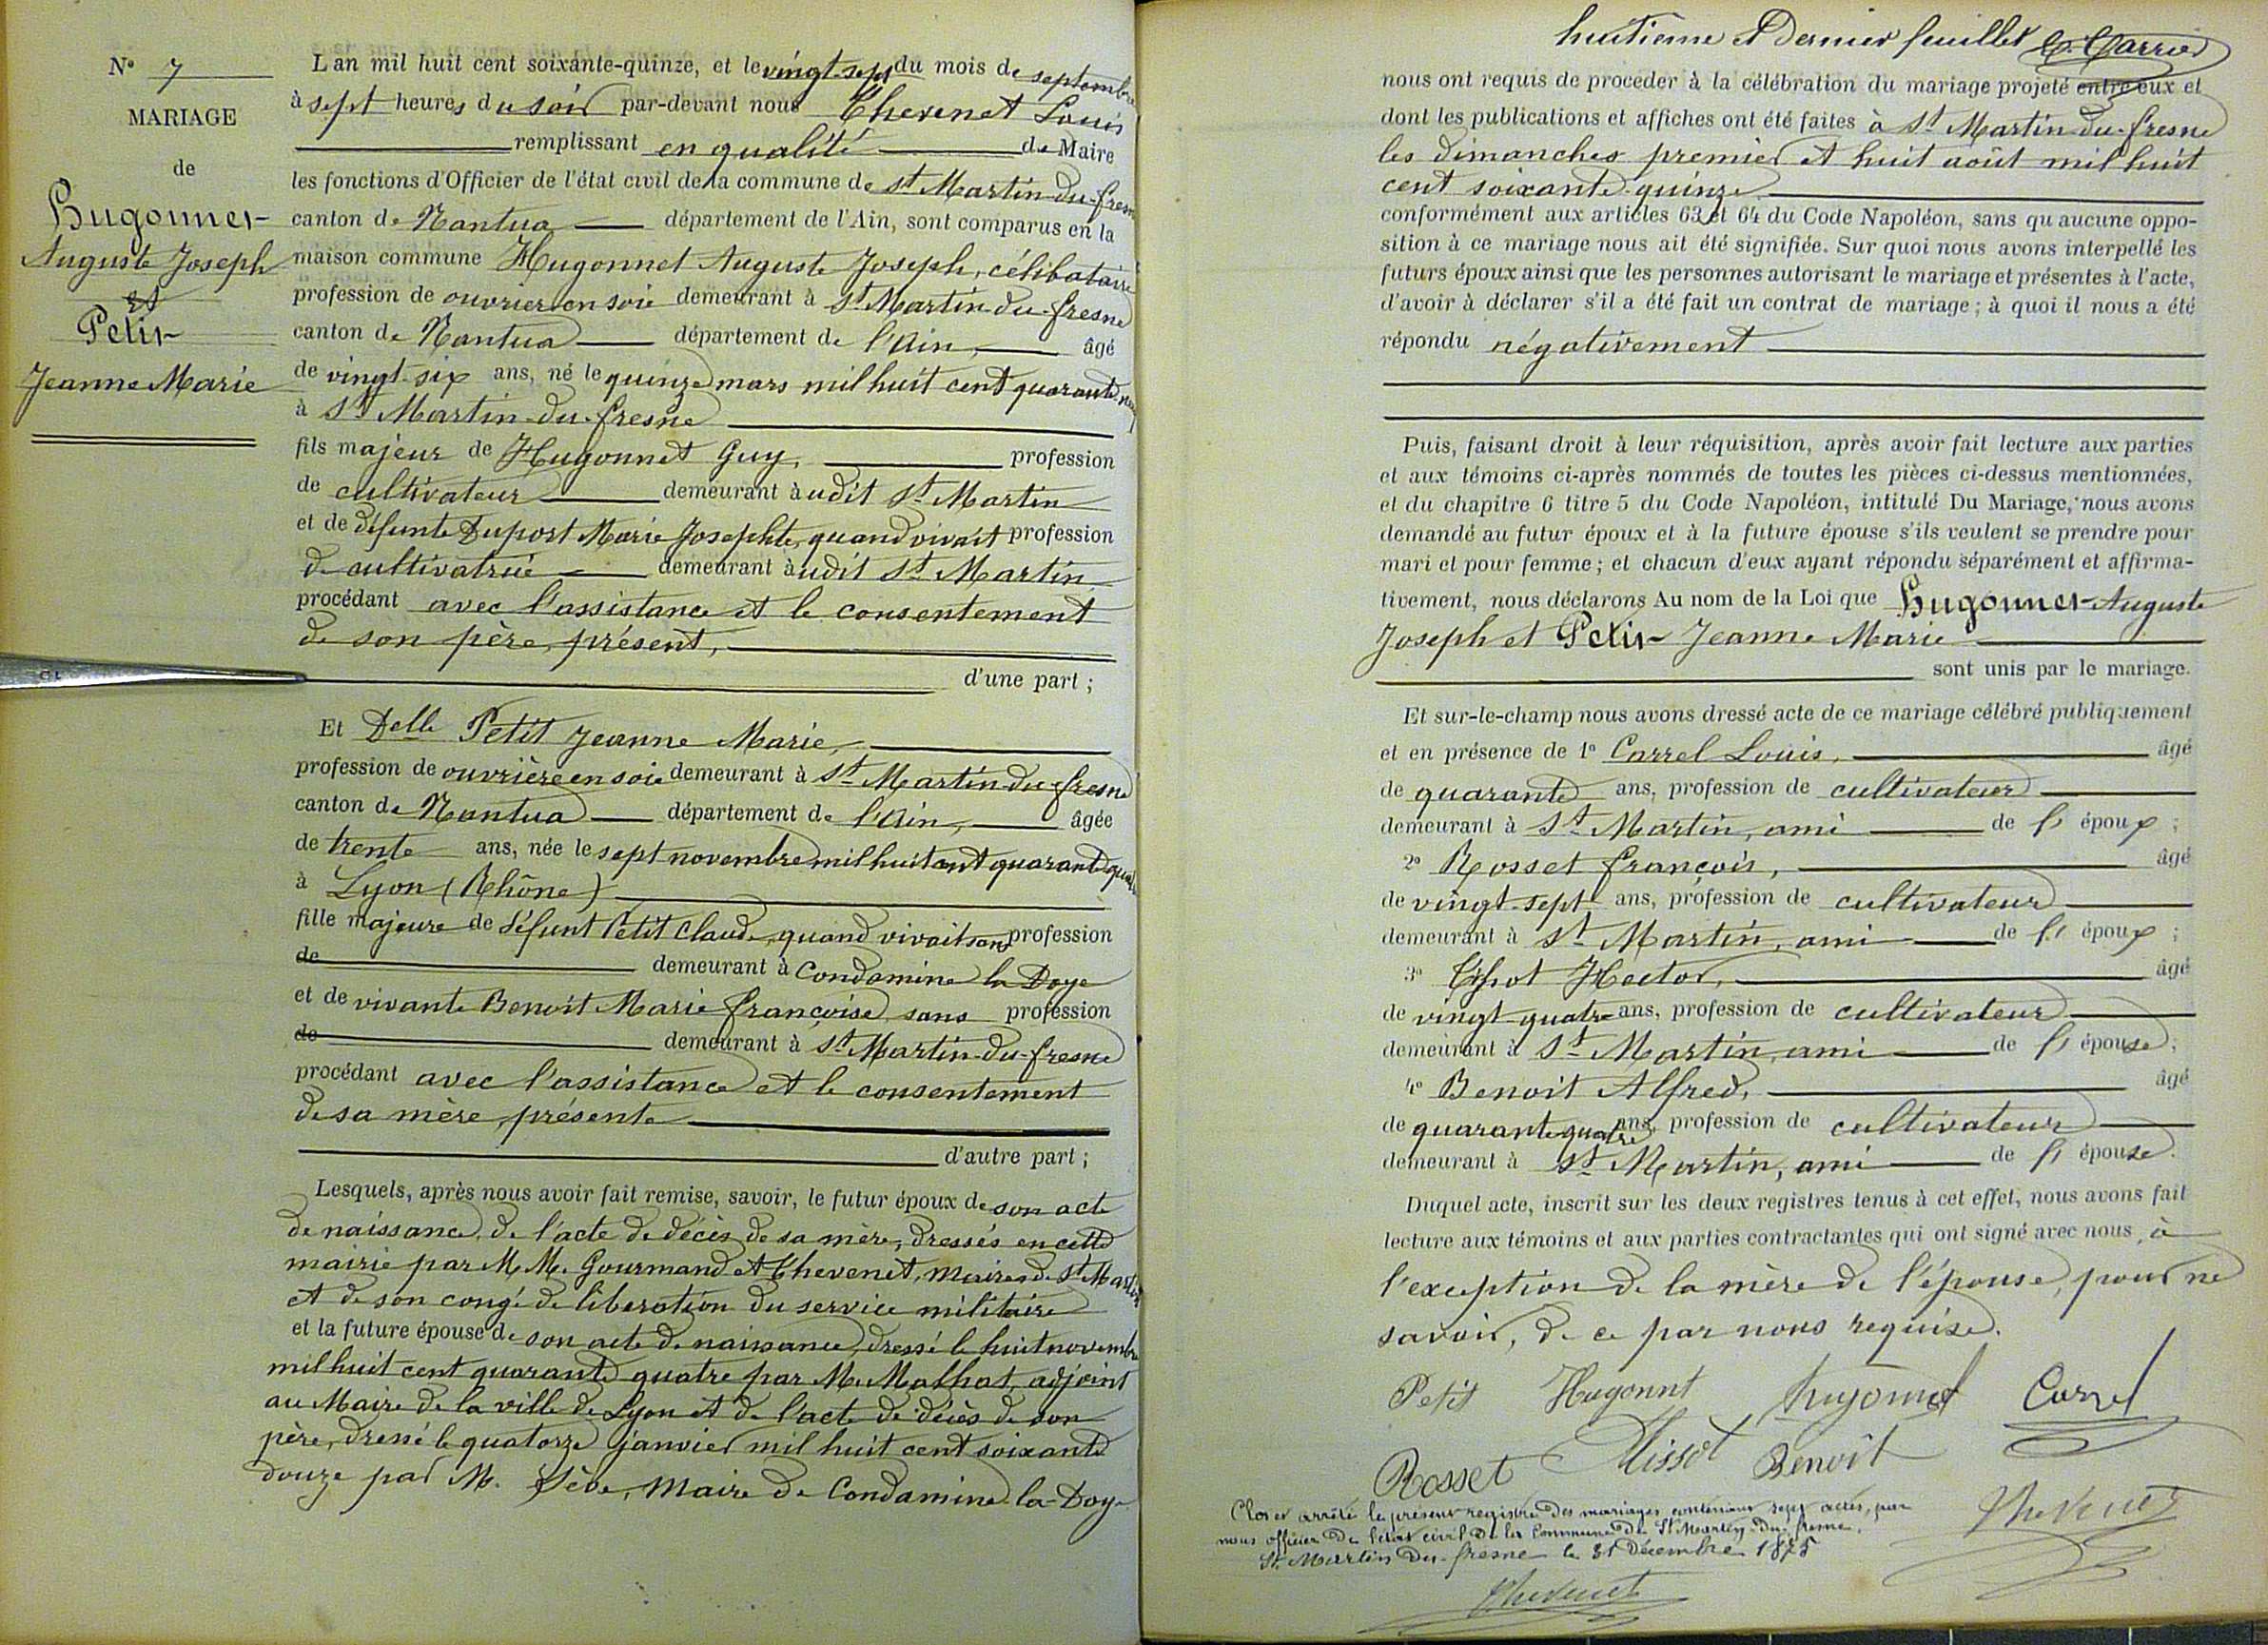 N° 7
MARIAGE
de
Hugonnet
Auguste Joseph
et
Petit
Jeanne Marie
L'an mil huit cent soixante-quinze, et le vingt-sept du mois de septembre
à sept heures du soir par-devant nous Thevenet Louis
remplissant en qualité de Maire
les fonctions d'Officier de l'état civil de la commune de St Martin-du-fresne
canton de Nantua département de l'Ain, sont comparus en la
maison commune Hugonnet Auguste Joseph, célibataire
profession de ouvrier en soie demeurant à St Martin-du-fresne
canton de Nantua département de l'Ain, âgé
de vingt-six ans, né le quinze mars mil huit cent quarante neuf
à St Martin-du-fresne
fils majeur de Hugonnet Guy, profession
de cultivateur demeurant àudit St Martin
et de défunte Duport Marie Josephte, quand vivait profession
de cultivatrice demeurant àudit St Martin
procédant avec l'assistance et le consentement
de son père, présent,
d'une part ;
Et Delle Petit Jeanne Marie,
profession de ouvrière en soie demeurant à St Martin-du-fresne
canton de Nantua département de l'Ain, âgée
de trente ans, née le sept novembre mil huit cent quarante quatre
à Lyon (Rhône)
fille majeure de défunt Petit Claude, quand vivait sans profession
de demeurant à Condamine la Doye
et de vivante Benoit Marie françoise, sans profession
de demeurant à St Martin-du-fresne
procédant avec l'assistance et le consentement
de sa mère, présente
d'autre part ;
Lesquels, après nous avoir fait remise, savoir, le futur époux de son acte
de naissance, de l'acte de décès de sa mère, dressés en cette
mairie par M.M. Gourmand et Thevenet, Maires de St Martin
et de son congé de libération du service militaire
et la future épouse de son acte de naissance, dressé le huit novembre
mil huit cent quarante quatre par M. Malhat, adjoint
au Maire de la ville de Lyon et de l'acte de décès de son
père, dressé le quatorze janvier mil huit cent soixante
douze par M. Sève, Maire de Condamine-la-Doye
huitième et dernier feuillet
nous ont requis de procéder à la célébration du mariage projeté entre eux et
dont les publications et affiches ont été faites à St Martin-du-fresne
les dimanches premier et huit août mil huit
cent soixante-quinze
conformément aux articles 63 et 64 du Code Napoléon, sans qu'aucune oppo-
sition à ce mariage nous ait été signifiée. Sur quoi nous avons interpellé les
futurs époux ainsi que les personnes autorisant le mariage et présentes à l'acte,
d'avoir à déclarer s'il a été fait un contrat de mariage ; à quoi il nous a été
répondu négativement
Puis, faisant droit à leur réquisition, après avoir fait lecture aux parties
et aux témoins ci-après nommés de toutes les pièces ci-dessus mentionnées,
et du chapitre 6 titre 5 du Code Napoléon, intitulé Du Mariage, nous avons
demandé au futur époux et à la future épouse s'ils veulent se prendre pour
mari et pour femme ; et chacun d'eux ayant répondu séparément et affirma-
tivement, nous déclarons Au nom de la Loi que Hugonnet Auguste
Joseph et Petit Jeanne Marie
sont unis par le mariage.
Et sur-le-champ nous avons dressé acte de ce mariage célébré publiquement
et en présence de 1° Carrel Louis, âgé
de quarante ans, profession de cultivateur
demeurant à St Martin, ami de l' époux ;
2° Rosset françois, âgé
de vingt-sept ans, profession de cultivateur
demeurant à St Martin, ami de l' époux ;
3° Hector, âgé
de vingt-quatre ans, profession de cultivateur
demeurant à St Martin, ami de l' épouse ;
4° Benoit Alfred, âgé
de quarante quatre ans, profession de cultivateur
demeurant à St Martin, ami de l' épouse.
Duquel acte, inscrit sur les deux registres tenus à cet effet, nous avons fait
lecture aux témoins et aux parties contractantes qui ont signé avec nous, à
l'exception de la mère de l'épouse, pour ne
savoir, de ce par nous requise.
Petit Hugonnt hugonnet Carrel
Rosset Missot Benoit
Thevenet
Clos et arrêté le présent registre des mariages contenant sept actes, par
nous officier de l'état civil de la Commune de St Martin-du-fresne.
St Martin-du-fresne le 31 Décembre 1875
Thevenet